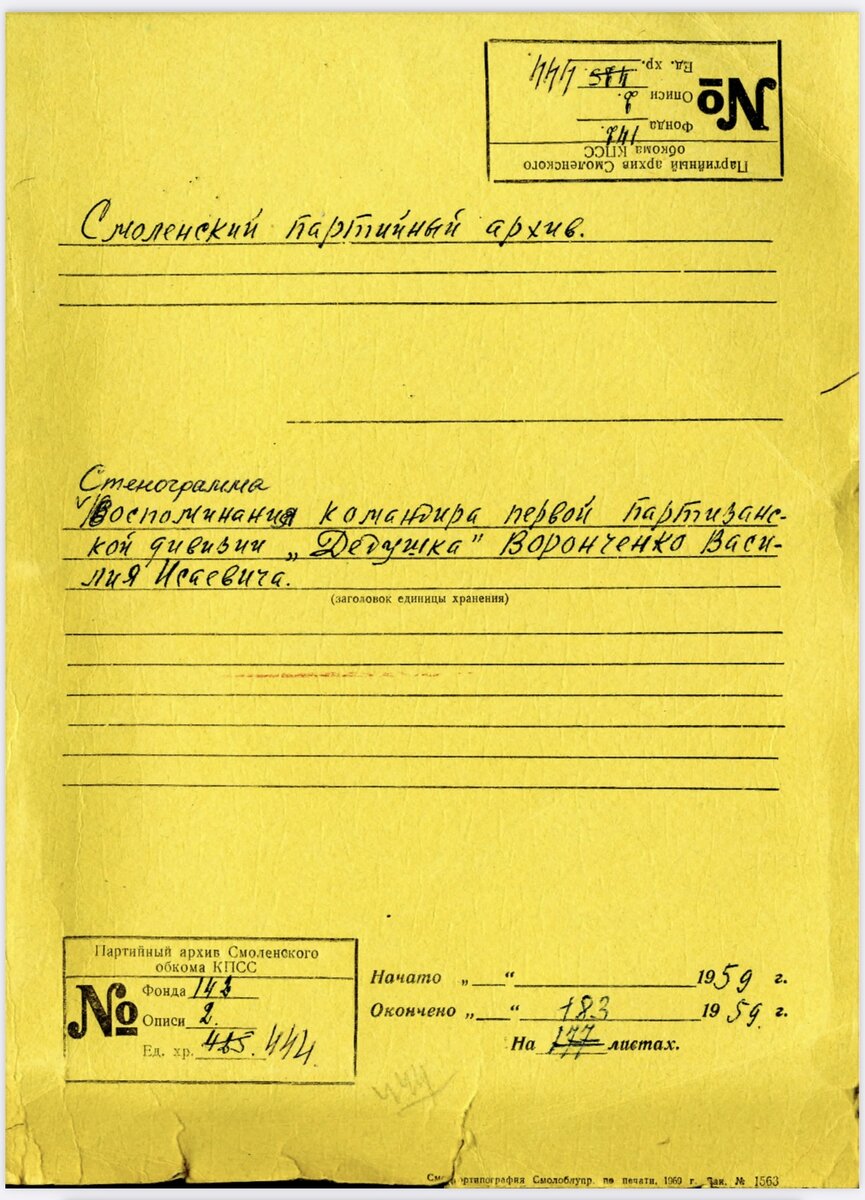 Партийный архив Смоленского
обкома КПСС
№
Фонда 142.
Описи 2.
Ед. хр. 444
Смоленский партийный архив.
Стенограмма
Воспоминания командира первой партизанс-
кой дивизии „Дедушка" Воронченко Васи-
лия Исаевича.
(заголовок единицы хранения)
Партийный архив Смоленского
обкома КПСС
№
Фонда
Описи 2.
Ед. хр. 465. 444
Начато „ “ 1959 г.
Окончено „ “ 1959 г.
183
На 177 листах.
444
типография Смолоблупр. по печати, 1960 г. Зак. № 1563